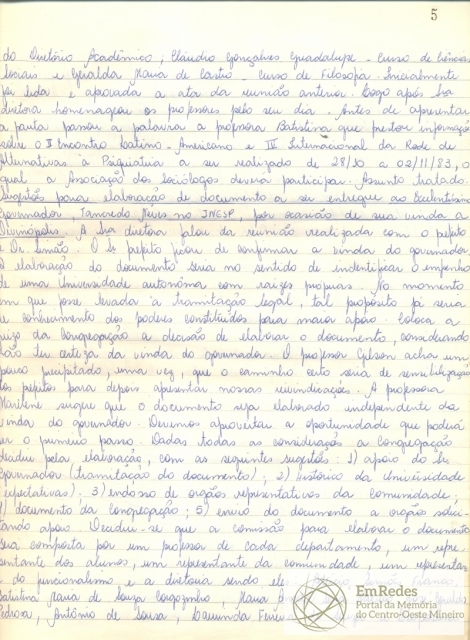 5
do Diretório Acadêmico, Cláudio Gonçalves Guadalupe - Curso de Ciências
Sociais e Geralda Maria de Castro - Curso de Filosofia. Inicialmente
foi lida e aprovada a ata da reunião anterior. Logo após Sra
diretora homenageou os professores pelo seu dia. Antes de apresentar
a pauta passou a palavra a professora Batistina que prestou informações
sobre o II Encontro Latino-Americano e IV Internacional da Rede de
Alternativas à Psiquiatria a ser realizado de 28/10 a 02/11/83, o
qual a Associação dos Sociólogos deverá participar. Assunto tratado:
Sugestões para elaboração de documento a ser entregue ao Excelentíssimo
Governador, Tancredo Neves no INESP, por ocasião de sua vinda a
Divinópolis. A Sra diretora falou da reunião realizada com o prefeito
e Dr. Simão. O Sr prefeito ficou de confirmar a vinda do governador.
A elaboração do documento seria no sentido de indentificar o empenho
de uma Universidade autonôma com raízes próprias. No momento
em que fosse levada à tramitação legal, tal propósito já seria
de conhecimento dos poderes constituídos para maior apoio. Coloca a
juizo da Congregação a decisão de elaborar o documento, considerando
não ter certeza da vinda do governador. O professor Gilson acha um
pouco precipitado, uma vez, que o caminho certo seria de sensibilização
dos prefeitos para depois apresentar nossas reivindicações. A professora
Marilene sugere que o documento seja elaborado independente da
vinda do governador. Devemos aproveitar a oportunidade que poderá
ser o primeiro passo. Dadas todas as considerações a Congregação
decidiu pela elaboração, com as seguintes sugestões: 1) apoio do Sr
Governador (tramitação do documento); 2) histórico da Universidade
(expectativas); 3) endosso de orgãos representativos da comunidade;
4) documento da Congregação; 5) envio do documento a orgãos solici-
tando apoio. Decidiu-se que a comissão para elaborar o documento
seria composta por um professor de cada departamento, um repre-
sentante dos alunos, um representante da comunidade, um representan-
te do funcionalismo e a diretora sendo eles:
Batistina Maria de Sousa Corgozinho, Maria
Pedrosa, Antônio de Sousa, Raimunda
EmRedes
Portal da Memória
do Centro-Oeste Mineiro